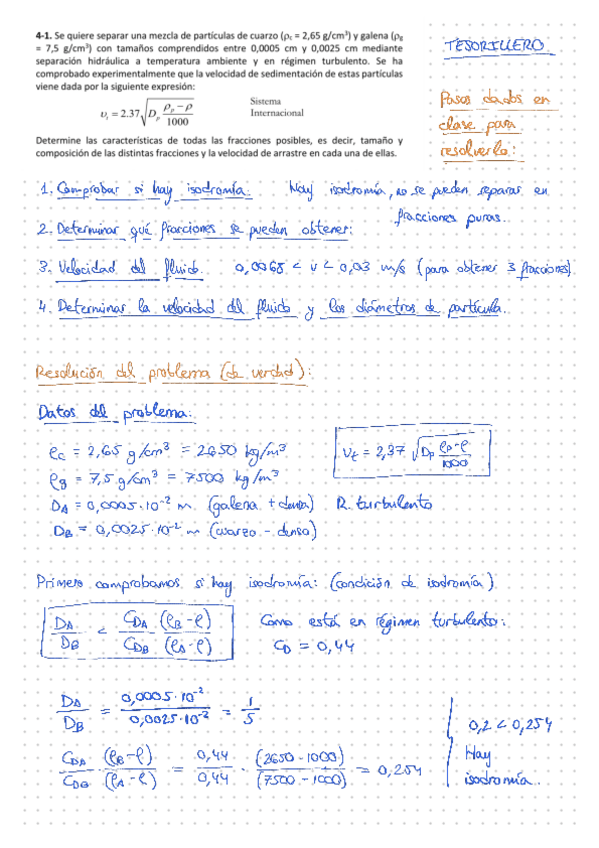 4-1. Se quiere separar una mezcla de partículas de cuarzo (ρc = 2,65 g/cm³) y galena (ρg
= 7,5 g/cm³) con tamaños comprendidos entre 0,0005 cm y 0,0025 cm mediante
separación hidráulica a temperatura ambiente y en régimen turbulento. Se ha
comprobado experimentalmente que la velocidad de sedimentación de estas partículas
viene dada por la siguiente expresión:
υt = 2.37 √(Dp (ρp − ρ)/1000) Sistema
Internacional
Determine las características de todas las fracciones posibles, es decir, tamaño y
composición de las distintas fracciones y la velocidad de arrastre en cada una de ellas.
TESORILLERO
Pasos dados en
clase para
resolverlo:
1. Comprobar si hay isodromía. Hay isodromía, no se pueden separar en
fracciones puras.
2. Determinar qué fracciones se pueden obtener:
3. Velocidad del fluido. 0,0068 < v < 0,03 m/s (para obtener 3 fracciones)
4. Determinar la velocidad del fluido y los diámetros de partícula.
Resolución del problema (de verdad):
Datos del problema:
ρc = 2,65 g/cm³ = 2650 kg/m³
Vt = 2,37 √(Dp (ρp-ρ)/1000)
ρg = 7,5 g/cm³ = 7500 kg/m³
DA = 0,0005·10⁻² m. (galena + densa) R. turbulento
DB = 0,0025·10⁻² m (cuarzo - denso)
Primero comprobamos si hay isodromía: (condición de isodromía)
DA/DB < CDA/CDB (ρB-ρ)/(ρA-ρ) Como está en régimen turbulento:
CD = 0,44
DA/DB = 0,0005·10⁻²/0,0025·10⁻² = 1/5
0,2 < 0,254
CDA/CDB · (ρB-ρ)/(ρA-ρ) = 0,44/0,44 · (2650-1000)/(7500-1000) = 0,254
Hay
isodromía.